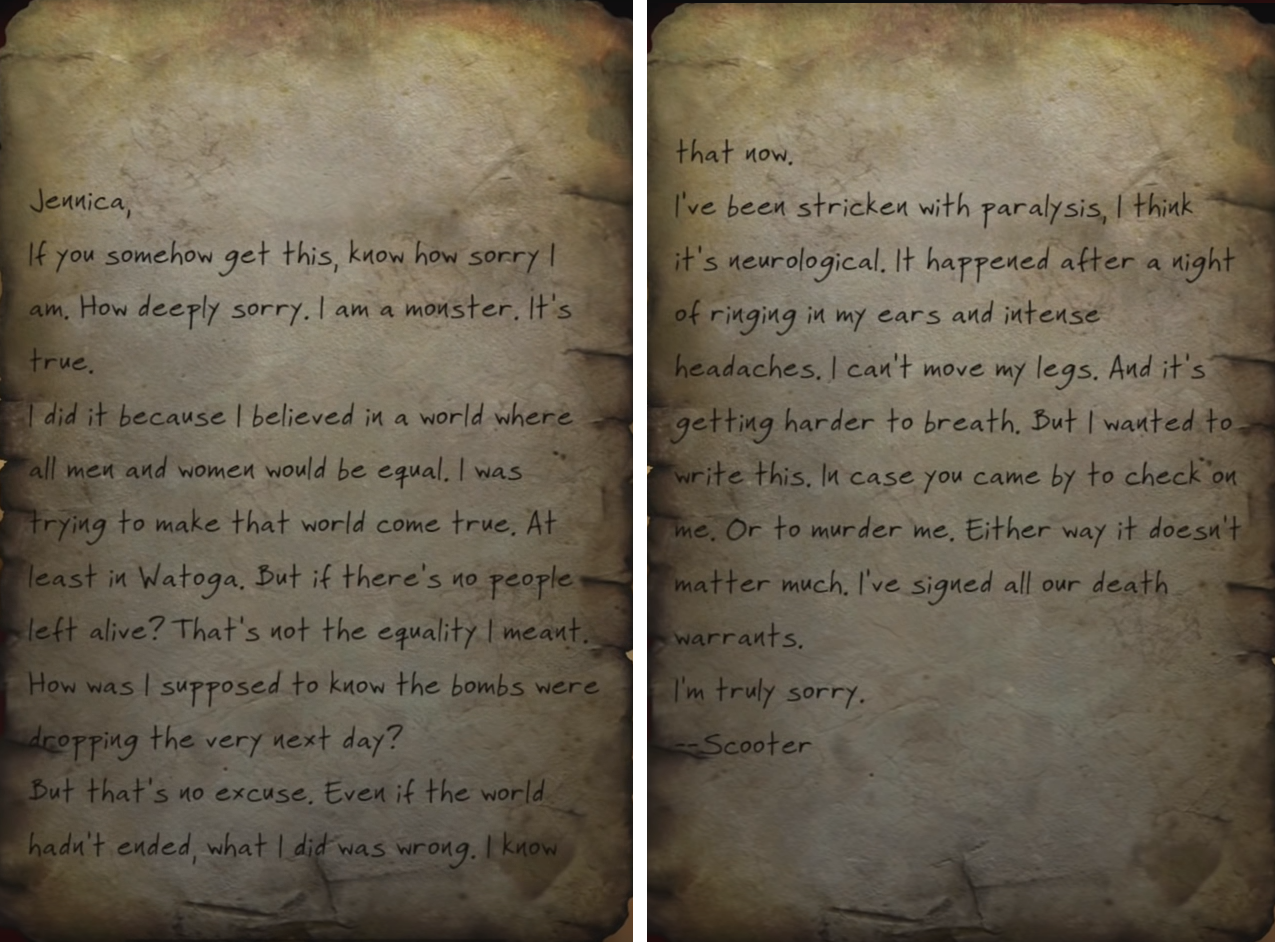 Jennica,
If you somehow get this, know how sorry I
am. How deeply sorry. I am a monster. It's
true.
I did it because I believed in a world where
all men and women would be equal. I was
trying to make that world come true. At
least in Watoga. But if there's no people
left alive? That's not the equality I meant.
How was I supposed to know the bombs were
dropping the very next day?
But that's no excuse. Even if the world
hadn't ended, what I did was wrong. I know
that now.
I've been stricken with paralysis, I think
it's neurological. It happened after a night
of ringing in my ears and intense
headaches. I can't move my legs. And it's
getting harder to breath. But I wanted to
write this. In case you came by to check on
me. Or to murder me. Either way it doesn't
matter much. I've signed all our death
warrants.
I'm truly sorry.
--Scooter